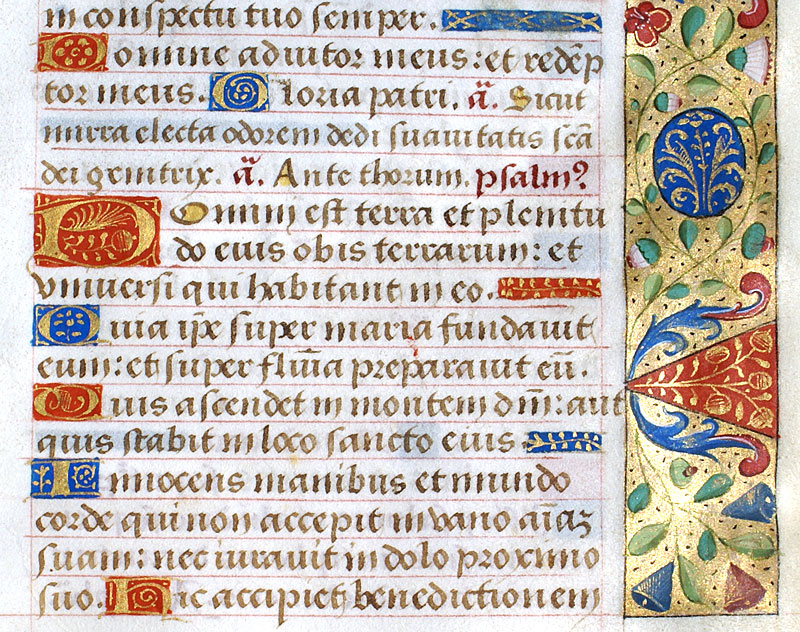 in conspectu tuo semper.
Domine adiutor meus: et redẽp
tor meus. Gloria patri. ã. Sicut
mirra electa odorem dedi suauitatis scã
dei genitrix. ã. Ante thorum. psalmꝰ
Domini est terra et plenitu
do eius obis terrarum: et
vniuersi qui habitant in eo.
Quia ip̃e super maria fundauit
eum: et super flũia preparauit eũ.
Quis ascendet in montem dñi: aut
quis stabit in loco sancto eius
Innocens manibus et mundo
corde qui non accepit in vano aĩaʒ
suam: nec iurauit in dolo proximo
suo. Hic accipiet benedictionem